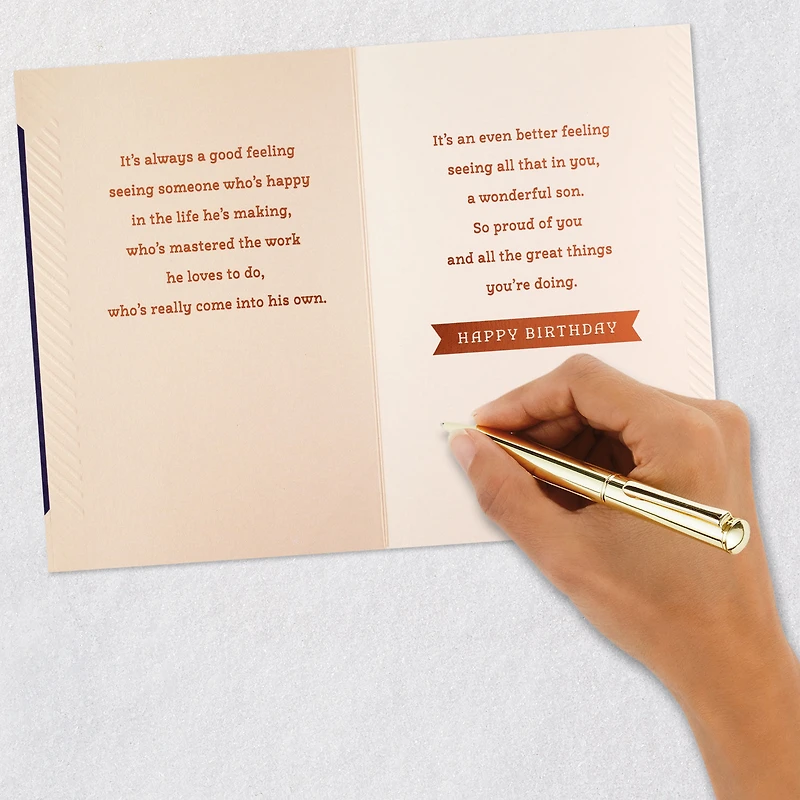 It's always a good feeling
seeing someone who's happy
in the life he's making,
who's mastered the work
he loves to do,
who's really come into his own.
It's an even better feeling
seeing all that in you,
a wonderful son.
So proud of you
and all the great things
you're doing.
HAPPY BIRTHDAY